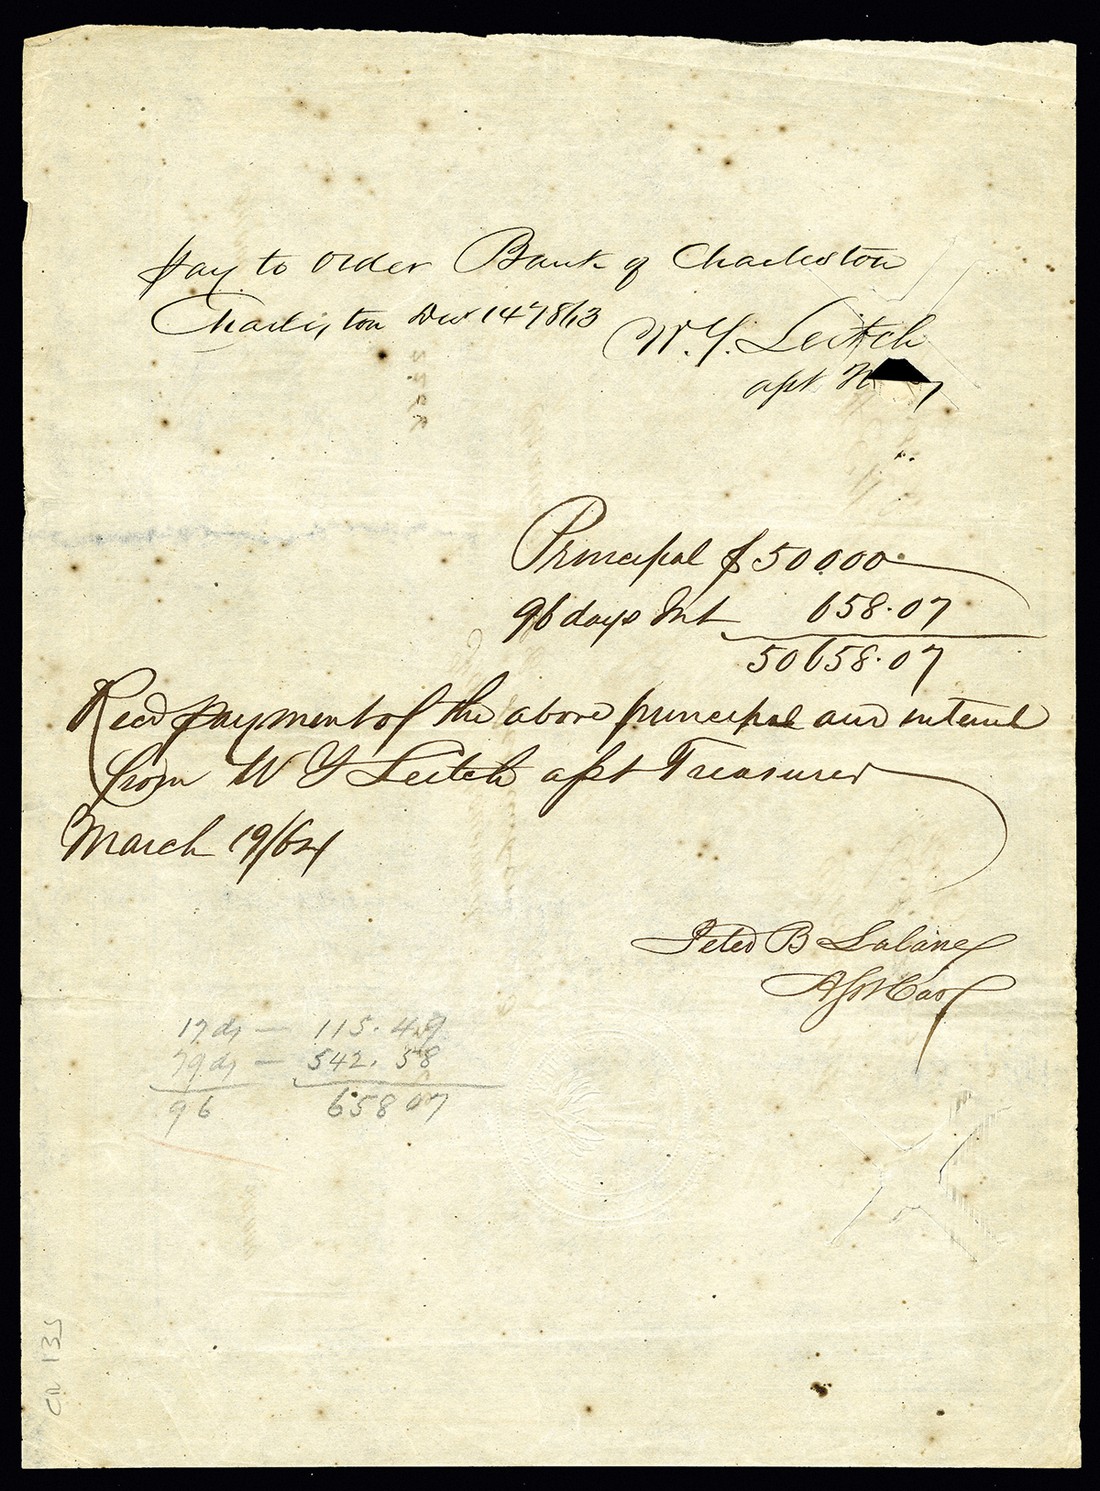 Pay to order Bank of Charleston
Charleston Dec 14 1863
W. Y. Leitch
asst
Principal $50.000
96 days Int 658.07
50658.07
Recd payment of the above principal and interest
from W Y Leitch asst Treasurer
March 19/64
Peter B Lalane
17 ds — 115.49
79 ds — 542.58
96 658 07
CR 135